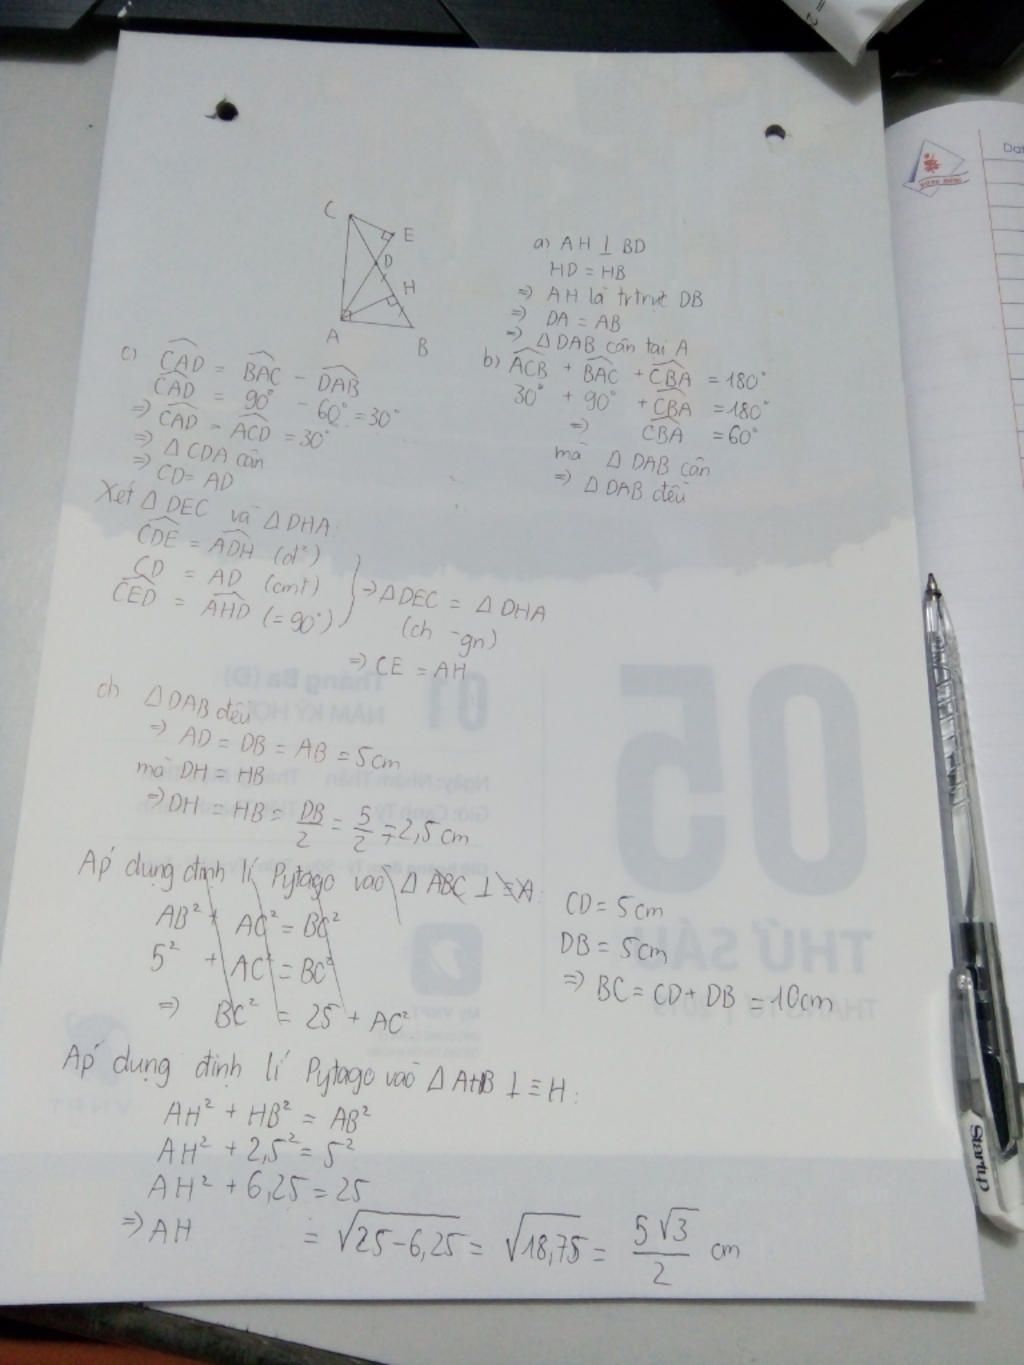 C
E
D
H
A
B
a) AH ⊥ BD
HD = HB
⇒ AH là trtrực DB
⇒ DA = AB
⇒ ΔDAB cân tại A
b) \widehat{ACB} + \widehat{BAC} + \widehat{CBA} = 180°
30° + 90° + \widehat{CBA} = 180°
⇒ \widehat{CBA} = 60°
mà ΔDAB cân
⇒ ΔDAB đều
c) \widehat{CAD} = \widehat{BAC} - \widehat{DAB}
\widehat{CAD} = 90° - 60° = 30°
⇒ \widehat{CAD} = \widehat{ACD} = 30°
⇒ ΔCDA cân
⇒ CD = AD
Xét ΔDEC và ΔDHA:
\widehat{CDE} = \widehat{ADH} (đ²)
CD = AD (cmt)
\widehat{CED} = \widehat{AHD} (= 90°)
⇒ ΔDEC = ΔDHA
(ch - gn)
⇒ CE = AH
d) ΔDAB đều
⇒ AD = DB = AB = 5cm
mà DH = HB
⇒ DH = HB = DB/2 = 5/2 = 2,5 cm
Áp dụng định lí Pytago vào Δ ABC ⊥ ≡ A:
AB² + AC² = BC²
5² + AC² = BC²
⇒ BC² = 25 + AC²
CD = 5cm
DB = 5cm
⇒ BC = CD + DB = 10cm
Áp dụng định lí Pytago vào ΔAHB ⊥ ≡ H:
AH² + HB² = AB²
AH² + 2,5² = 5²
AH² + 6,25 = 25
⇒ AH = √25 - 6,25 = √18,75 = 5√3/2 cm
05
THỨ SÁU
01
Tháng Ba (Đ)
NĂM KỶ HỢI
VNPT
My VNPT
Starup